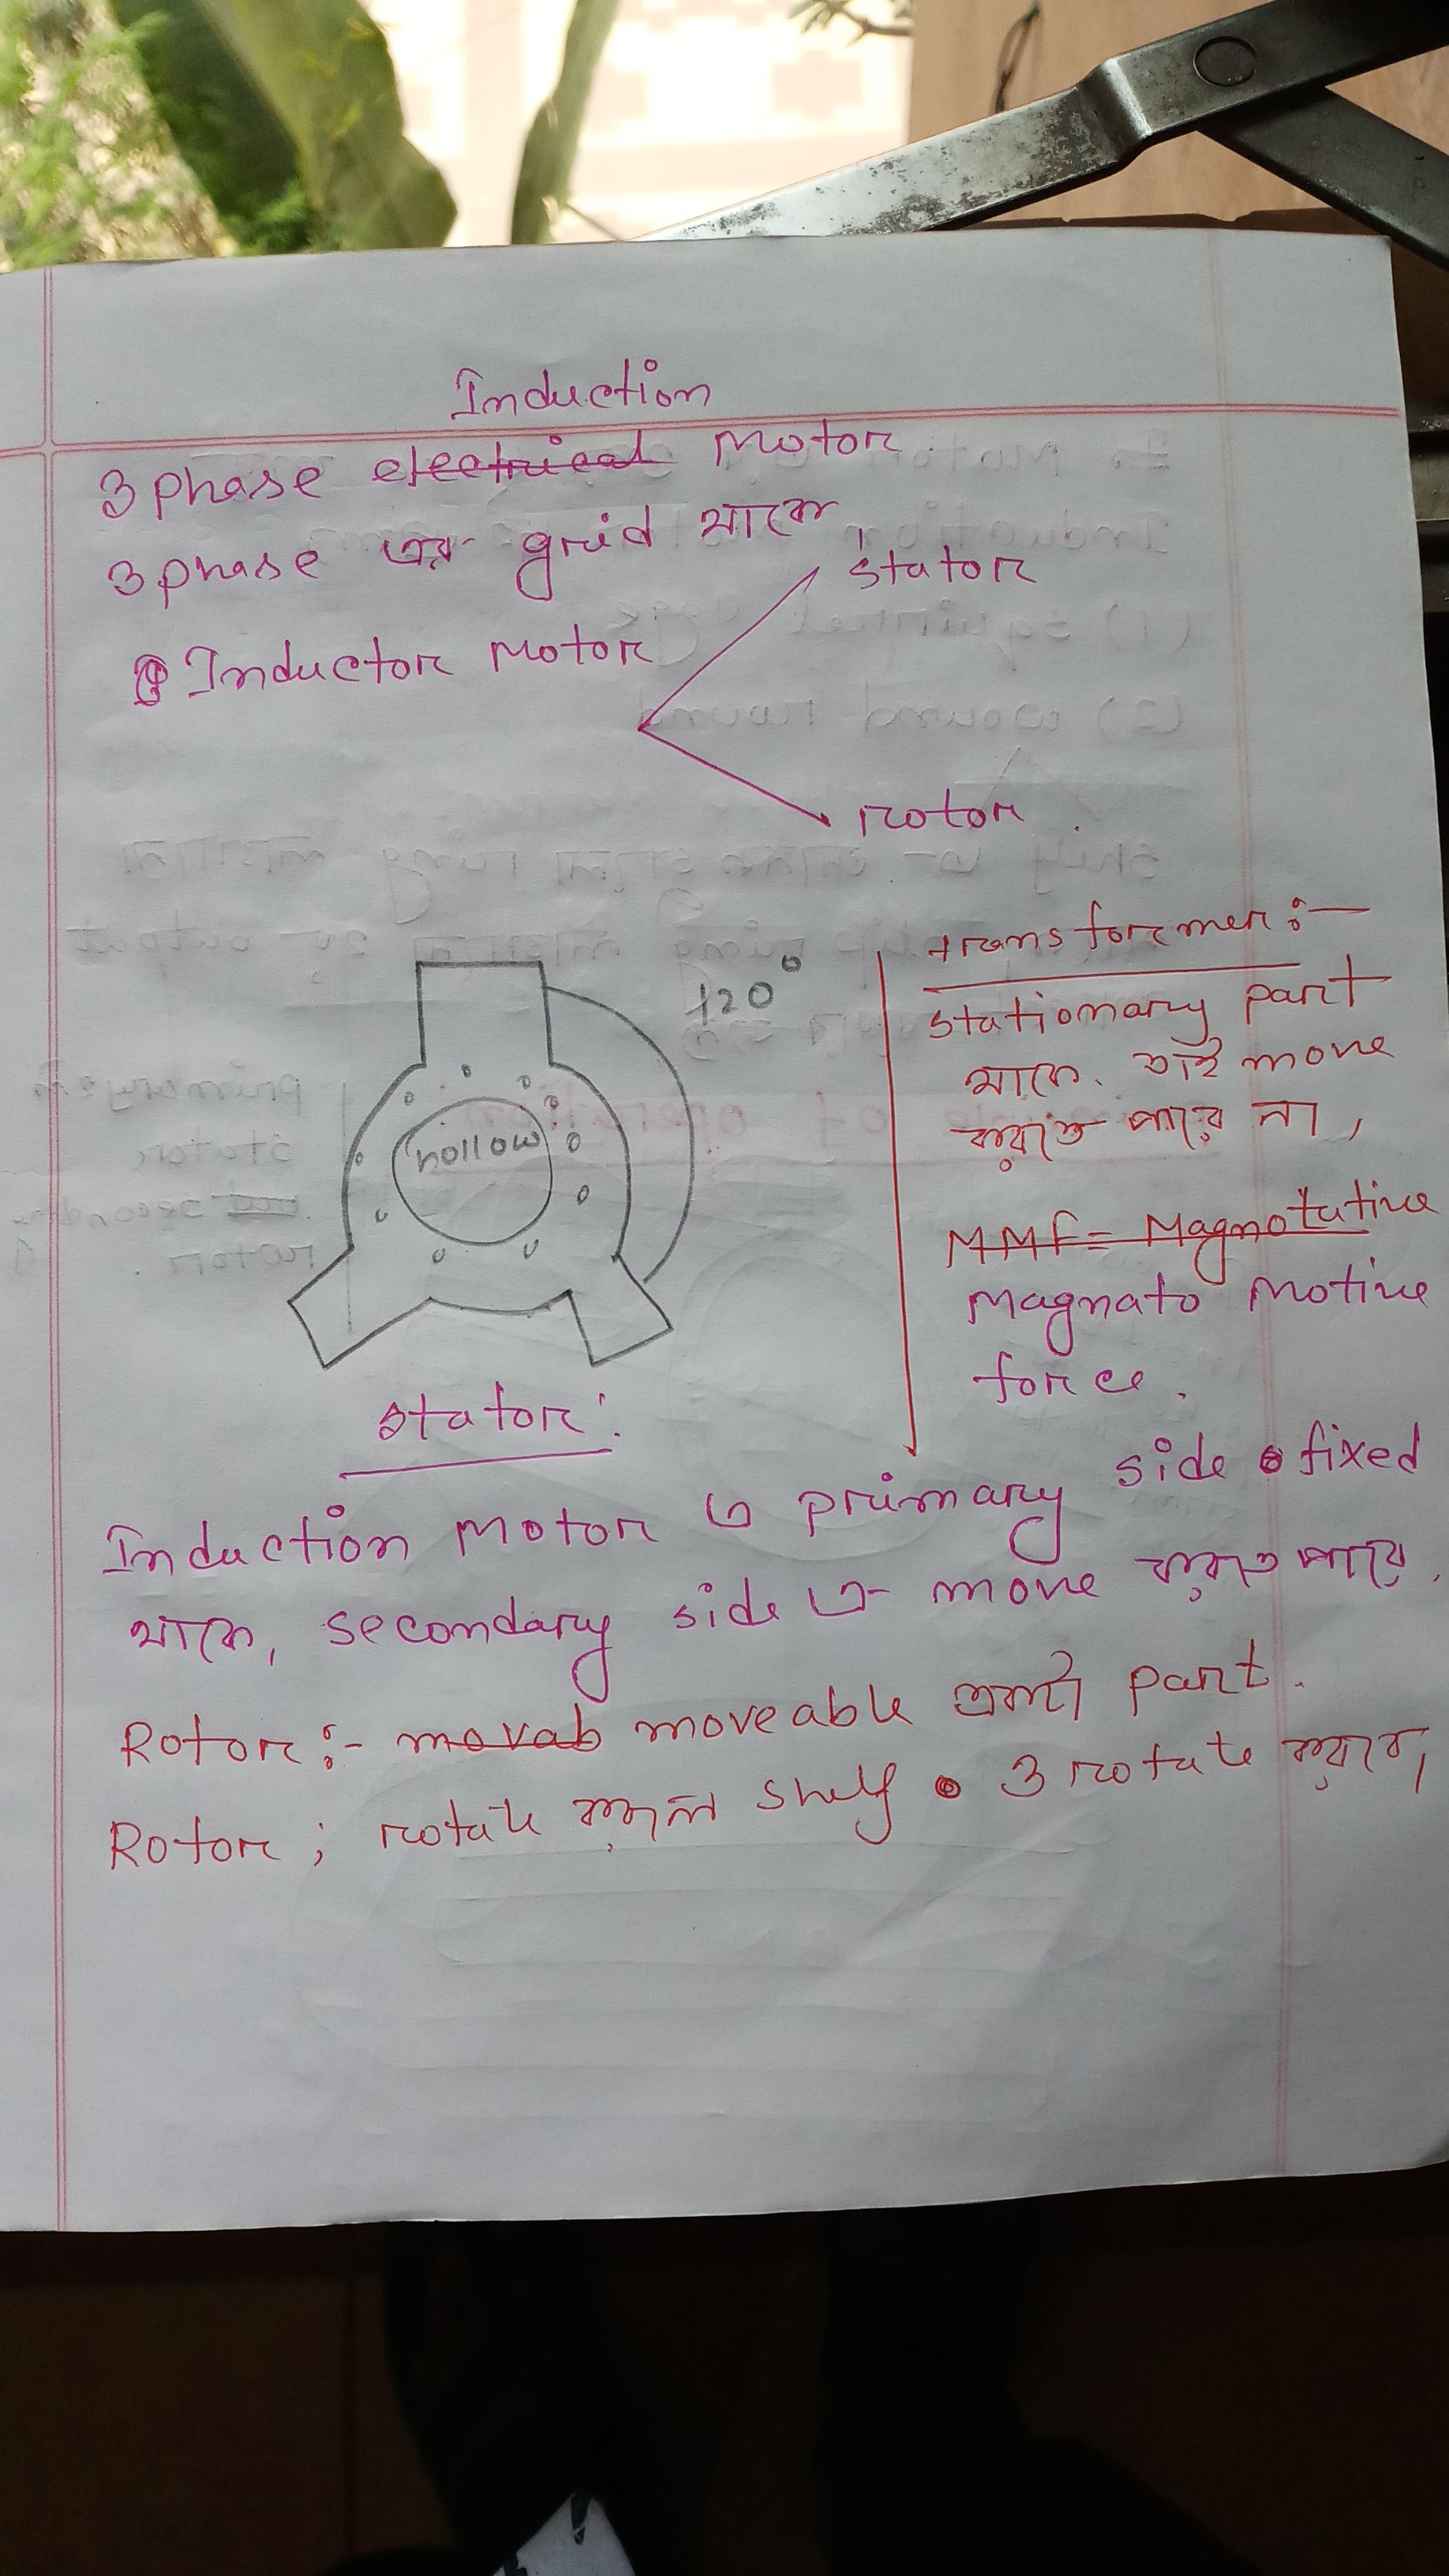 Induction
3 phase electrical Motor
3 phase এর grid থাকে
Inductor Motor
stator
rotor
120°
hollow
stator:
transformer:-
stationary part
থাকে. তাই move
করতে পারে না,
MMF = Magnotutive
Magnato Motive
force.
Induction Motor এ primary side fixed
থাকে, secondary side এ move করতে পারে.
Rotor:- movab moveable একটা part.
Rotor; rotate করলে shelf ও rotate করবে,